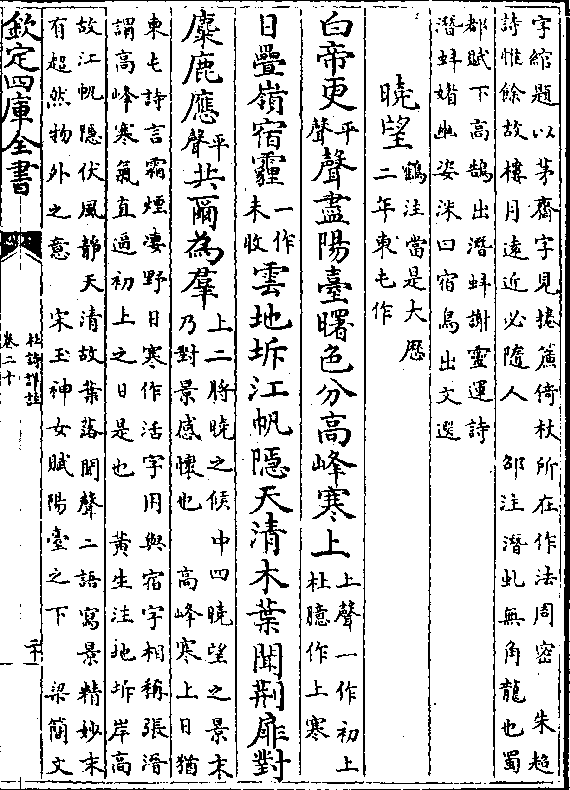 字綰題以茅齋字見捲簾倚杖所在作法周密　朱超
詩惟餘故樓月遠近必隨人　邵注潛虬無角龍也蜀
都賦下高鵠出潛蚪謝靈運詩
潛蚪媚幽姿洙曰宿鳥出文選
曉望鶴注當是大厯
二年東屯作
白帝更平聲聲盡陽臺曙色分高峰寒上上聲一作初上杜臆作上寒
日疊嶺宿霾一作未收雲地坼江帆隱天清木葉聞荆扉對
麋鹿應平聲共爾為羣上二將曉之候中四曉望之景末
乃對景感懷也　高峰寒上日猶
東屯詩言霜煙凄野日寒作活字用與宿字相稱張溍
謂高峰寒氣直逼初上之日是也　黄生注地坼岸高
故江帆隱伏風静天清故葉落聞聲二語寫景精妙末
有超然物外之意　宋玉神女賦陽臺之下　梁簡文
欽定四庫全書
杜詩詳註
卷二十